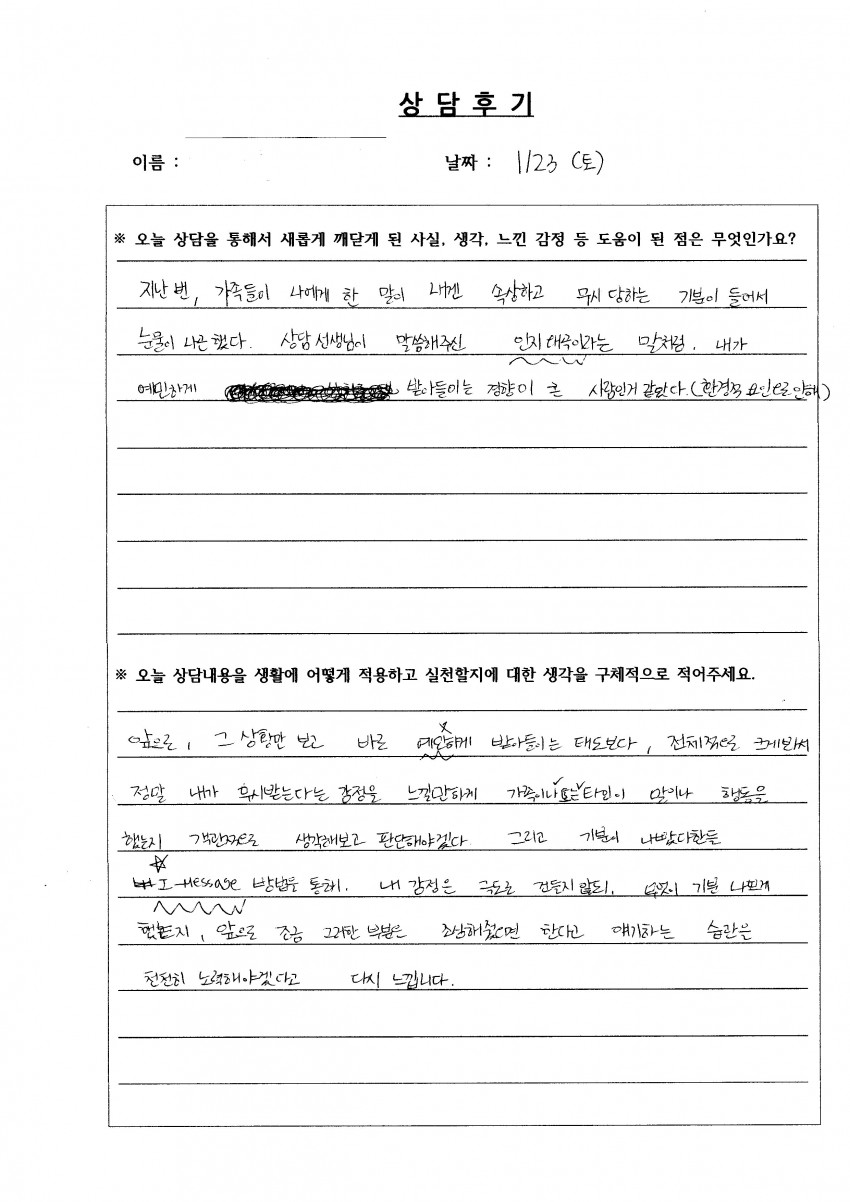 상 담 후 기
이름 :
날짜 : 1/23 (토)
※ 오늘 상담을 통해서 새롭게 깨닫게 된 사실, 생각, 느낀 감정 등 도움이 된 점은 무엇인가요?
지난 번, 가족들이 나에게 한 말이 내겐 속상하고 무시 당하는 기분이 들어서
눈물이 나곤 했다. 상담 선생님이 말씀해주신 인지 왜곡이라는 말처럼, 내가
예민하게 받아들이는 경향이 큰 사람인거 같았다. (환경적 요인으로 인해)
※ 오늘 상담내용을 생활에 어떻게 적용하고 실천할지에 대한 생각을 구체적으로 적어주세요.
앞으로, 그 상황만 보고 바로 예민하게 받아들이는 태도보다, 전체적으로 크게봐서
정말 내가 무시받는다는 감정을 느낄만하게 가족이나 또는 타인이 말이나 행동을
했는지 객관적으로 생각해보고 판단해야겠다 그리고 기분이 나빴다한들
I-Message 방법을 통해, 내 감정은 극도로 건들지 않되, 무엇이 기분 나쁘게
했는지, 앞으로 조금 그러한 부분은 조심해줬으면 한다고 얘기하는 습관은
천천히 노력해야겠다고 다시 느낍니다.